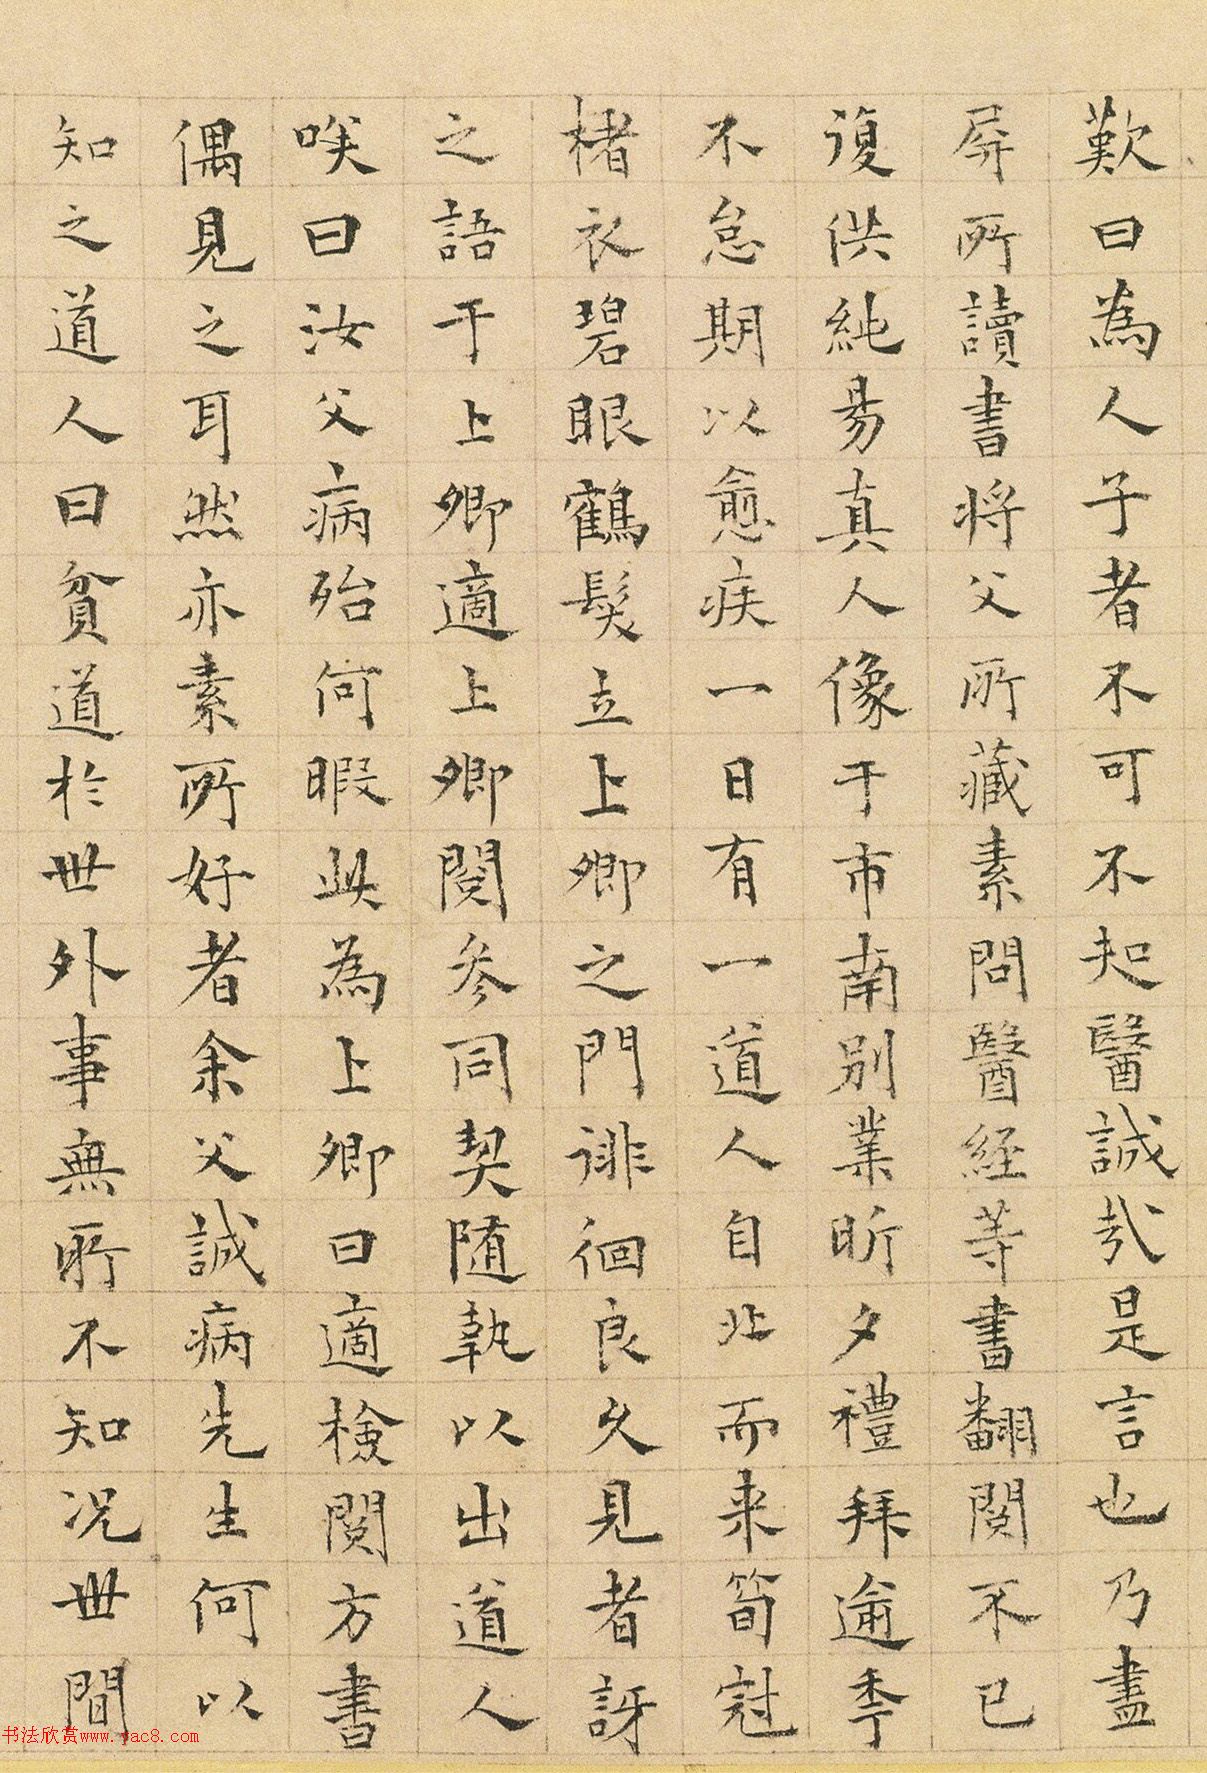 歎曰為人子者不可不知醫誠哉是言也乃盡
屏所讀書將父所藏素問醫經等書翻閱不已
復供純昜真人像于市南别業昕夕禮拜逾季
不怠期以愈疾一日有一道人自北而来筍冠
楮衣碧眼鶴髮立上卿之門誹徊良久見者訝
之語于上卿適上卿閱参同契随執以出道人
唉曰汝父病殆何暇此為上卿曰適檢閱方書
偶見之耳然亦素所好者余父誠病先生何以
知之道人曰貧道於世外事無所不知况世間
书法欣赏www.yac8.com